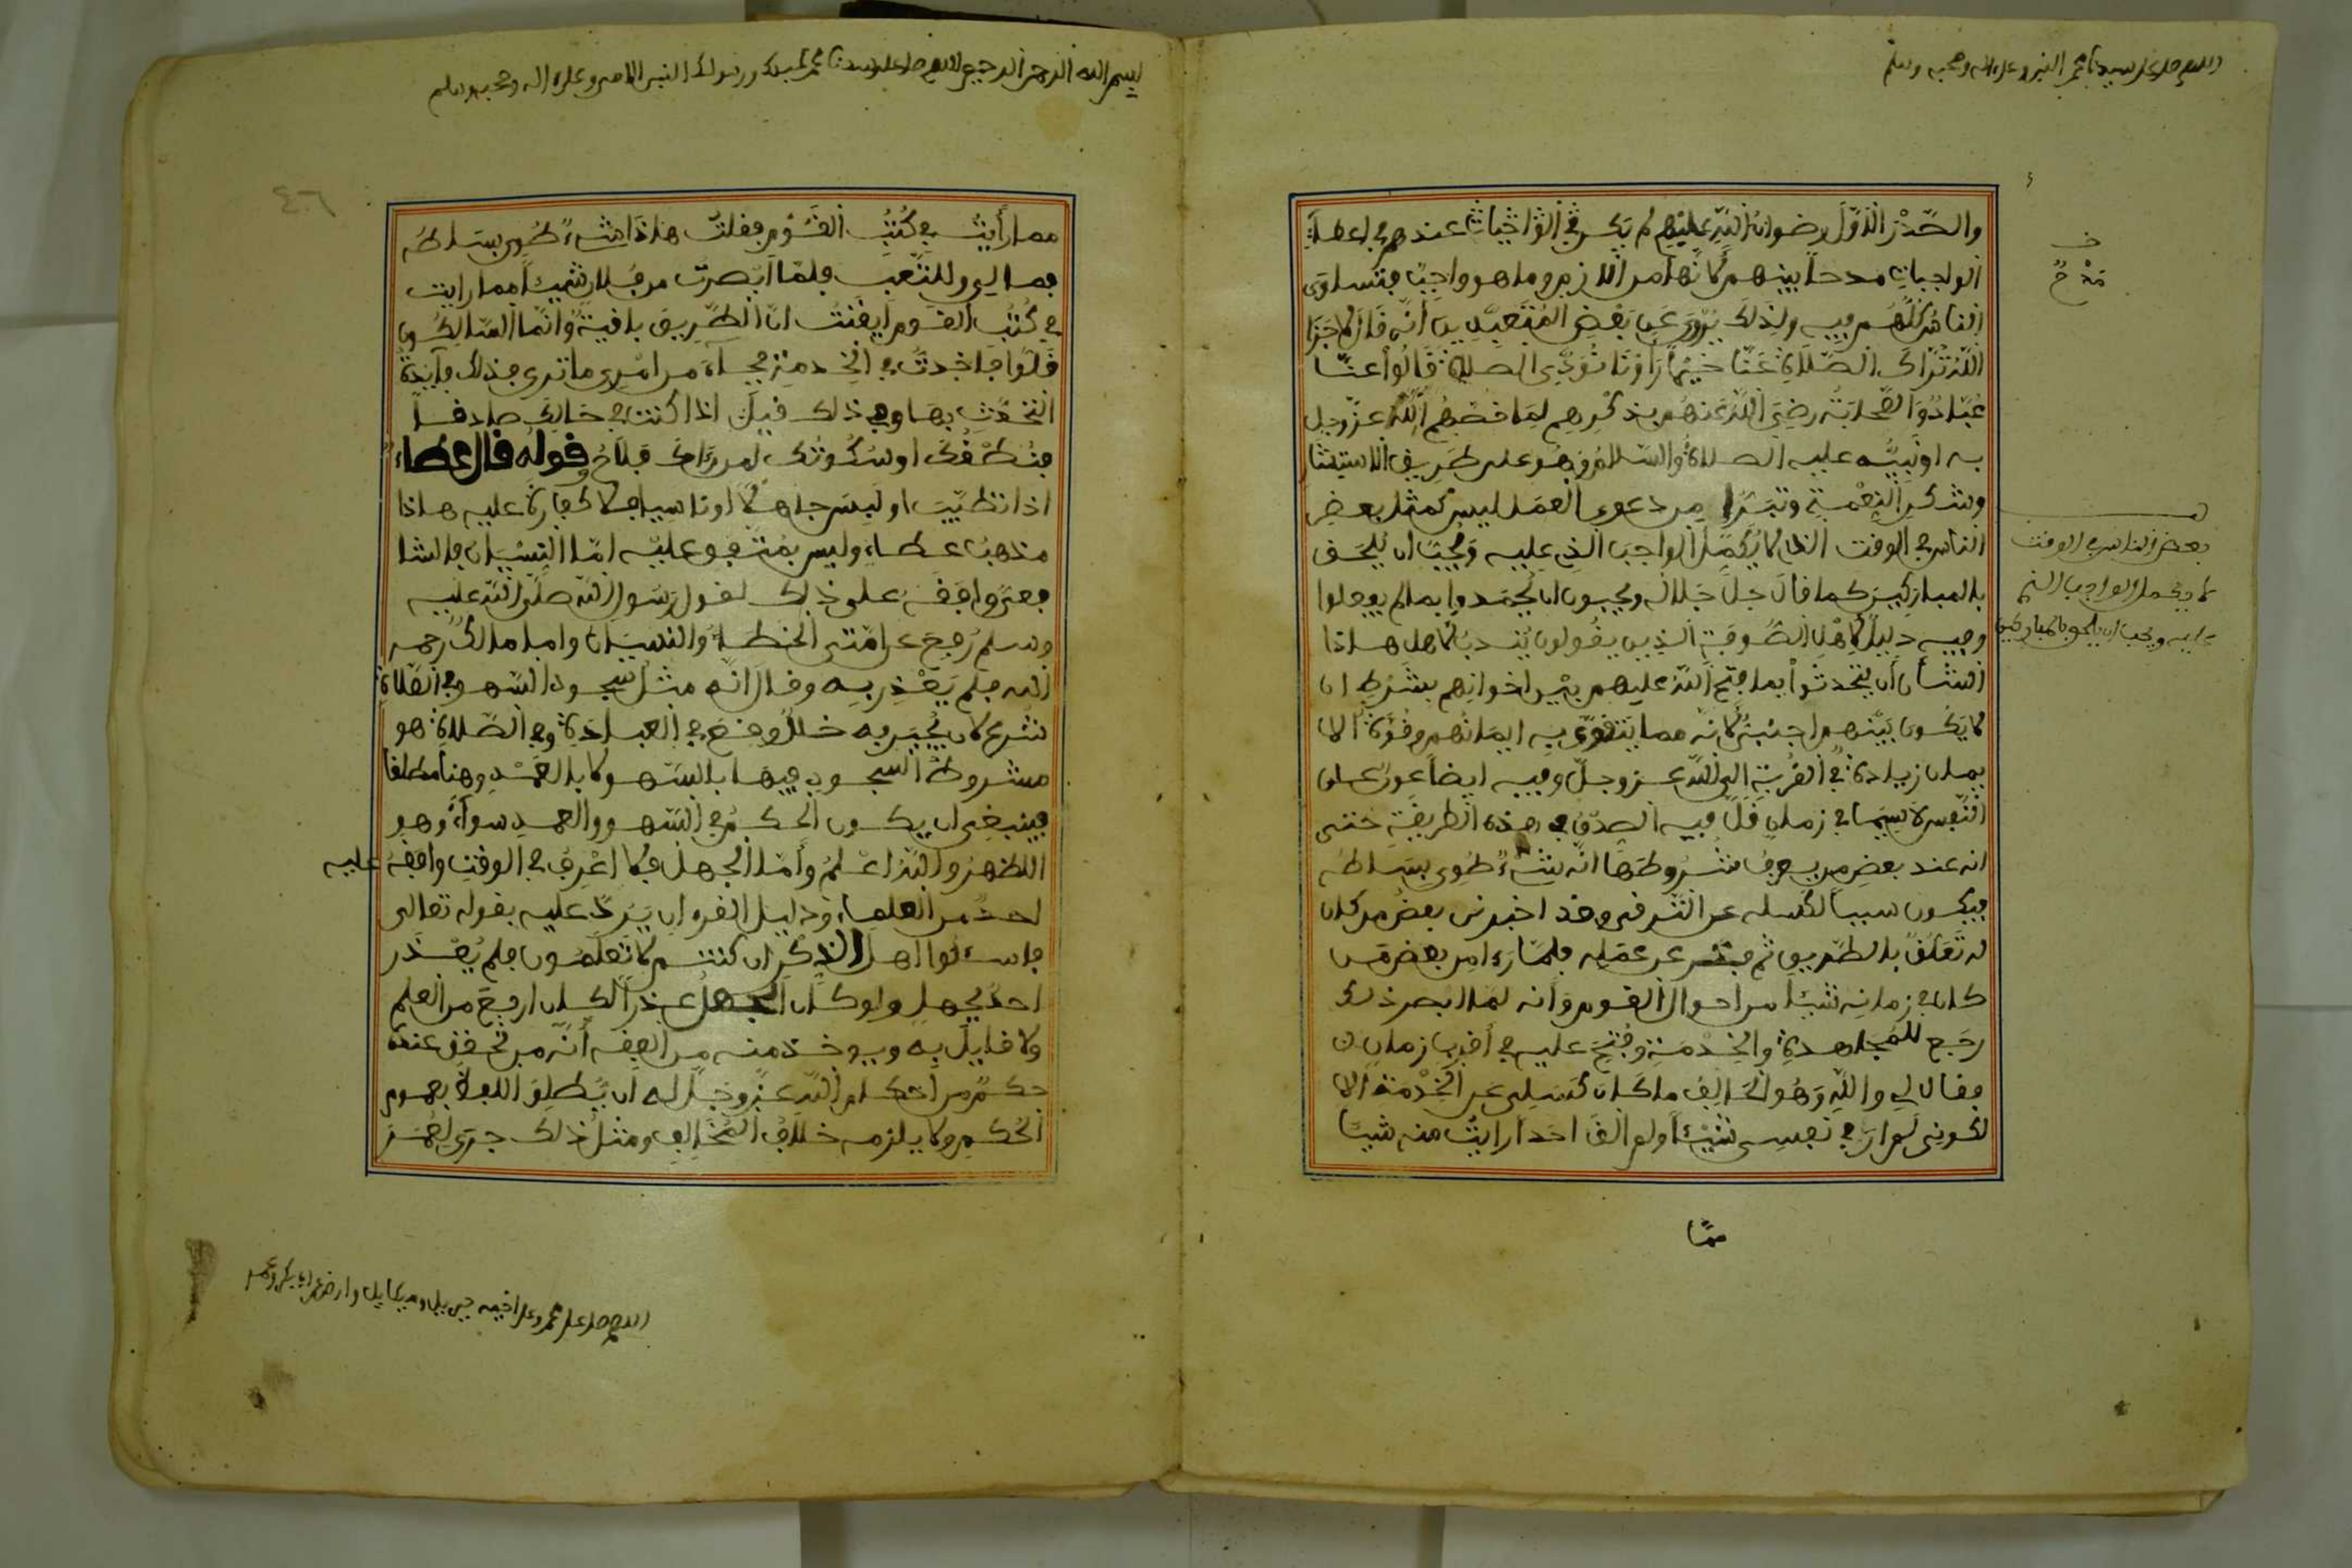 اللهم صل على سيدنا محمد النبي وعلى اله وصحبه وسلم
والصَّدْرُ الاوّلُ رضوانُ اللهِ عليْهِم لم يكن في الوَاجباتِ عندهم في اعطاءِ
الواجباتِ مدحًا بينهم لانها امر لازم وما هو واجب فتساوى
الناسُ كلهُم فيه ولذلك يُرْوَى عن بَعْضِ المُتَعَبِّدِين أنه قال لا جَزَا
اللهُ تُرَّاكَ الصلاةِ عَنَّا خيْرًا رَأوْنَا نُؤدِّي الصلاة فقالُوا عنا
عُبّادٌ والصحابَة رضِيَ الله عنهُم بذكْرِهِم لِمَا خصّهُم اللهُ عزّ وجل
به او نَبِيّه عليه الصلاةُ والسّلامُ فهُوَ على طريق الاستبشار
وشكرِ النِّعْمةِ وتبَرَّا من دعوى العمَل ليس كمثل بعض
الناس في الوقت الذي لا يُكَمِّلُ الواجبَ الذي عليه وَيُحِبّ ان يُلحَق
بالمباركين كما قالَ جلّ جَلاله ويحبون ان يُحْمَدوا بما لم يفعلوا
وفيه دليلٌ لأهْلِ الصُّوفةِ الذين يقُولون يُنْدبُ لاهل هذا
الشأن أن يتحدثوا بما فتح الله عليهم بيْن اخوانهم بشرط ان
لا يكُون بَيْنهم اجنبيٌّ لانه مما يتقوّى به ايمانُهُم وقُوّةُ الا
يمان زيادةٌ في القُرْبة الى الله عز وجلّ وفيه ايضًا عون على
النّفس لا سيّما في زمانٍ قَلّ فيه الصدْق في هذه الطريقة حتى
انه عند بعض من يعرف شُرُوطَهَا انه شيْءٌ طُوِي بِسَاطُه
فيكون سببًا لكسله عن الترقي وقد اخبرني بعضُ من كان
له تَعَلُّقٌ بالطّريق ثم فتر عن عمَلِه فلمّا رءا من بعض مَن
كان في زمانِه شيْئًا من احوال القوم وَانه لمّا ابصر ذلك
رجَع للمُجاهدةِ والخِدْمةِ وفُتِحَ عليه في أقرب زمان
فقال لي واللهِ وَهُو الحَالِفُ ما كان كَسَلِي عن الخِدْمة الا
لكوني لم ار في نفسي شيْئًا ولم الْقَ احدًا رايتُ منه شيْئًا
ممّا
خـ
مَدْحٌ
بعض الناس في الوقت
لا يكمل الواجب الذي
عليه ويحب ان يلحق بالمباركين
بسم الله الرحمن الرحيم اللهم صل على سيدنا محمد عبدك ورسولك النبي الامي وعلى اله وصحبه وسلم
مما رأيتُ في كُتُبِ القَوْمِ فقلتُ هاذا شيْءٌ طُوِيَ بِسَاطُه
فما لي وللتَّعَبِ فلمّا أبْصرتُ من فُلان شيْئًا مما رايت
في كُتُبِ القوم أيْقَنْتُ انّ الطّريق باقيةٌ وانّما السّالِكُون
قَلّوا فاخذتُ في الخدمة فجاءَ من امْرِي ما ترى فذلك فايدةُ
التحدّثِ بها وفي ذلك قيل اذا كنت في حالِك صادقًا
فنُطْقُك او سُكُوتُك لمن رَءاك فلاحٌ وقوله قال عطاء
اذا تطيّبَ او لَبِسَ جاهلًا او ناسيًا فلا كفارةَ عليه هاذا
مذهبُ عطاءٍ وليس بمُتّفَقٍ عليْه امّا النِّسْيان فالشا
فعيُّ وافقَهُ على ذلك لقول رسُول الله صلّى الله عليه
وسلم رُفِعَ عن امّتي الخطأُ والنسيان واما مالكٌ رحمه
الله فلم يَعْذِر به وقال انّه مثْل سجود السّهو في الصلاة
شُرِعَ لان يُجْبَر به خللٌ وقع في العبادةِ وفي الصّلاةِ هو
مشروطُ السجود فيها بالسّهو لا بالعَمْدِ وهنا مطلقًا
فينبغي ان يكون الحكمُ في السّهو والعمد سواءً وهو
الاظهرُ واللهُ اعْلمُ وأمّا الجهل فلا اعْرِفُ في الوقت وافقهُ عليه
احدٌ من العلماءِ ودليل القرءان يَرُدّ عليه بقوله تعالى
فاسئلوا اهل الذكر ان كنتم لا تعلمُون فلم يُعْذَر
احدٌ بجهلٍ ولو كان الجهلُ عذرًا لكان ارفعَ من العلم
ولا قايلَ به ويوخذ منه من الفقه أنّه من تحقق عنده
حكمٌ من احكام الله عزّ وجلّ له ان يُطلِقَ اللفظ بعموم
الحُكمِ ولا يلزمه خلافُ المُخالِفِ ومثلُ ذلك جرَى لعُمَرَ
اللهم صل على محمد وعلى اخيه جبريل وميكايل وارض عن ابي بكر وعمر
٤٦